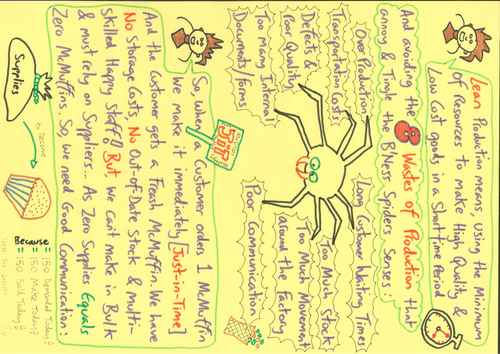 Lean Production means, using the Minimum
Of Resources to make High Quality &
Low Cost goods in a Short time Period
And avoiding the 8 Wastes of Production that
annoy & Tingle the BNess Spiders Senses:
Over Production
Transportation Costs
Defects &
Poor Quality
Too Many Internal
Documents/Forms
Long Customer Waiting Times
Too Much Stock
Too Much Movement
around the Factory
Poor Communication
So, when a Customer orders 1 McMuffin
We make it immediately [Just-in-Time]
And the Customer gets a Fresh McMuffin. We have
No Storage Costs, No Out-of-Date Stock & Multi-
Skilled Happy Staff! But we can't make in Bulk
& must rely on Suppliers... As Zero Supplies Equals
Zero McMuffins. So, we need Good Communication:
Supplies
to Become
Because = 150 Demanded Today?
= 150 Make Today?
= 150 Sold Today?